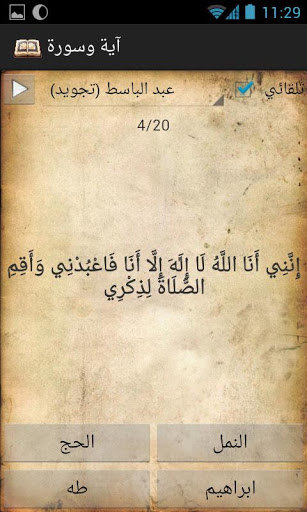 11:29
آية وسورة
تلقائي عبد الباسط (تجويد)
4/20
إِنَّنِي أَنَا اللَّهُ لَا إِلَهَ إِلَّا أَنَا فَاعْبُدْنِي وَأَقِمِ
الصَّلَاةَ لِذِكْرِي
النمل الحج
ابراهيم طه